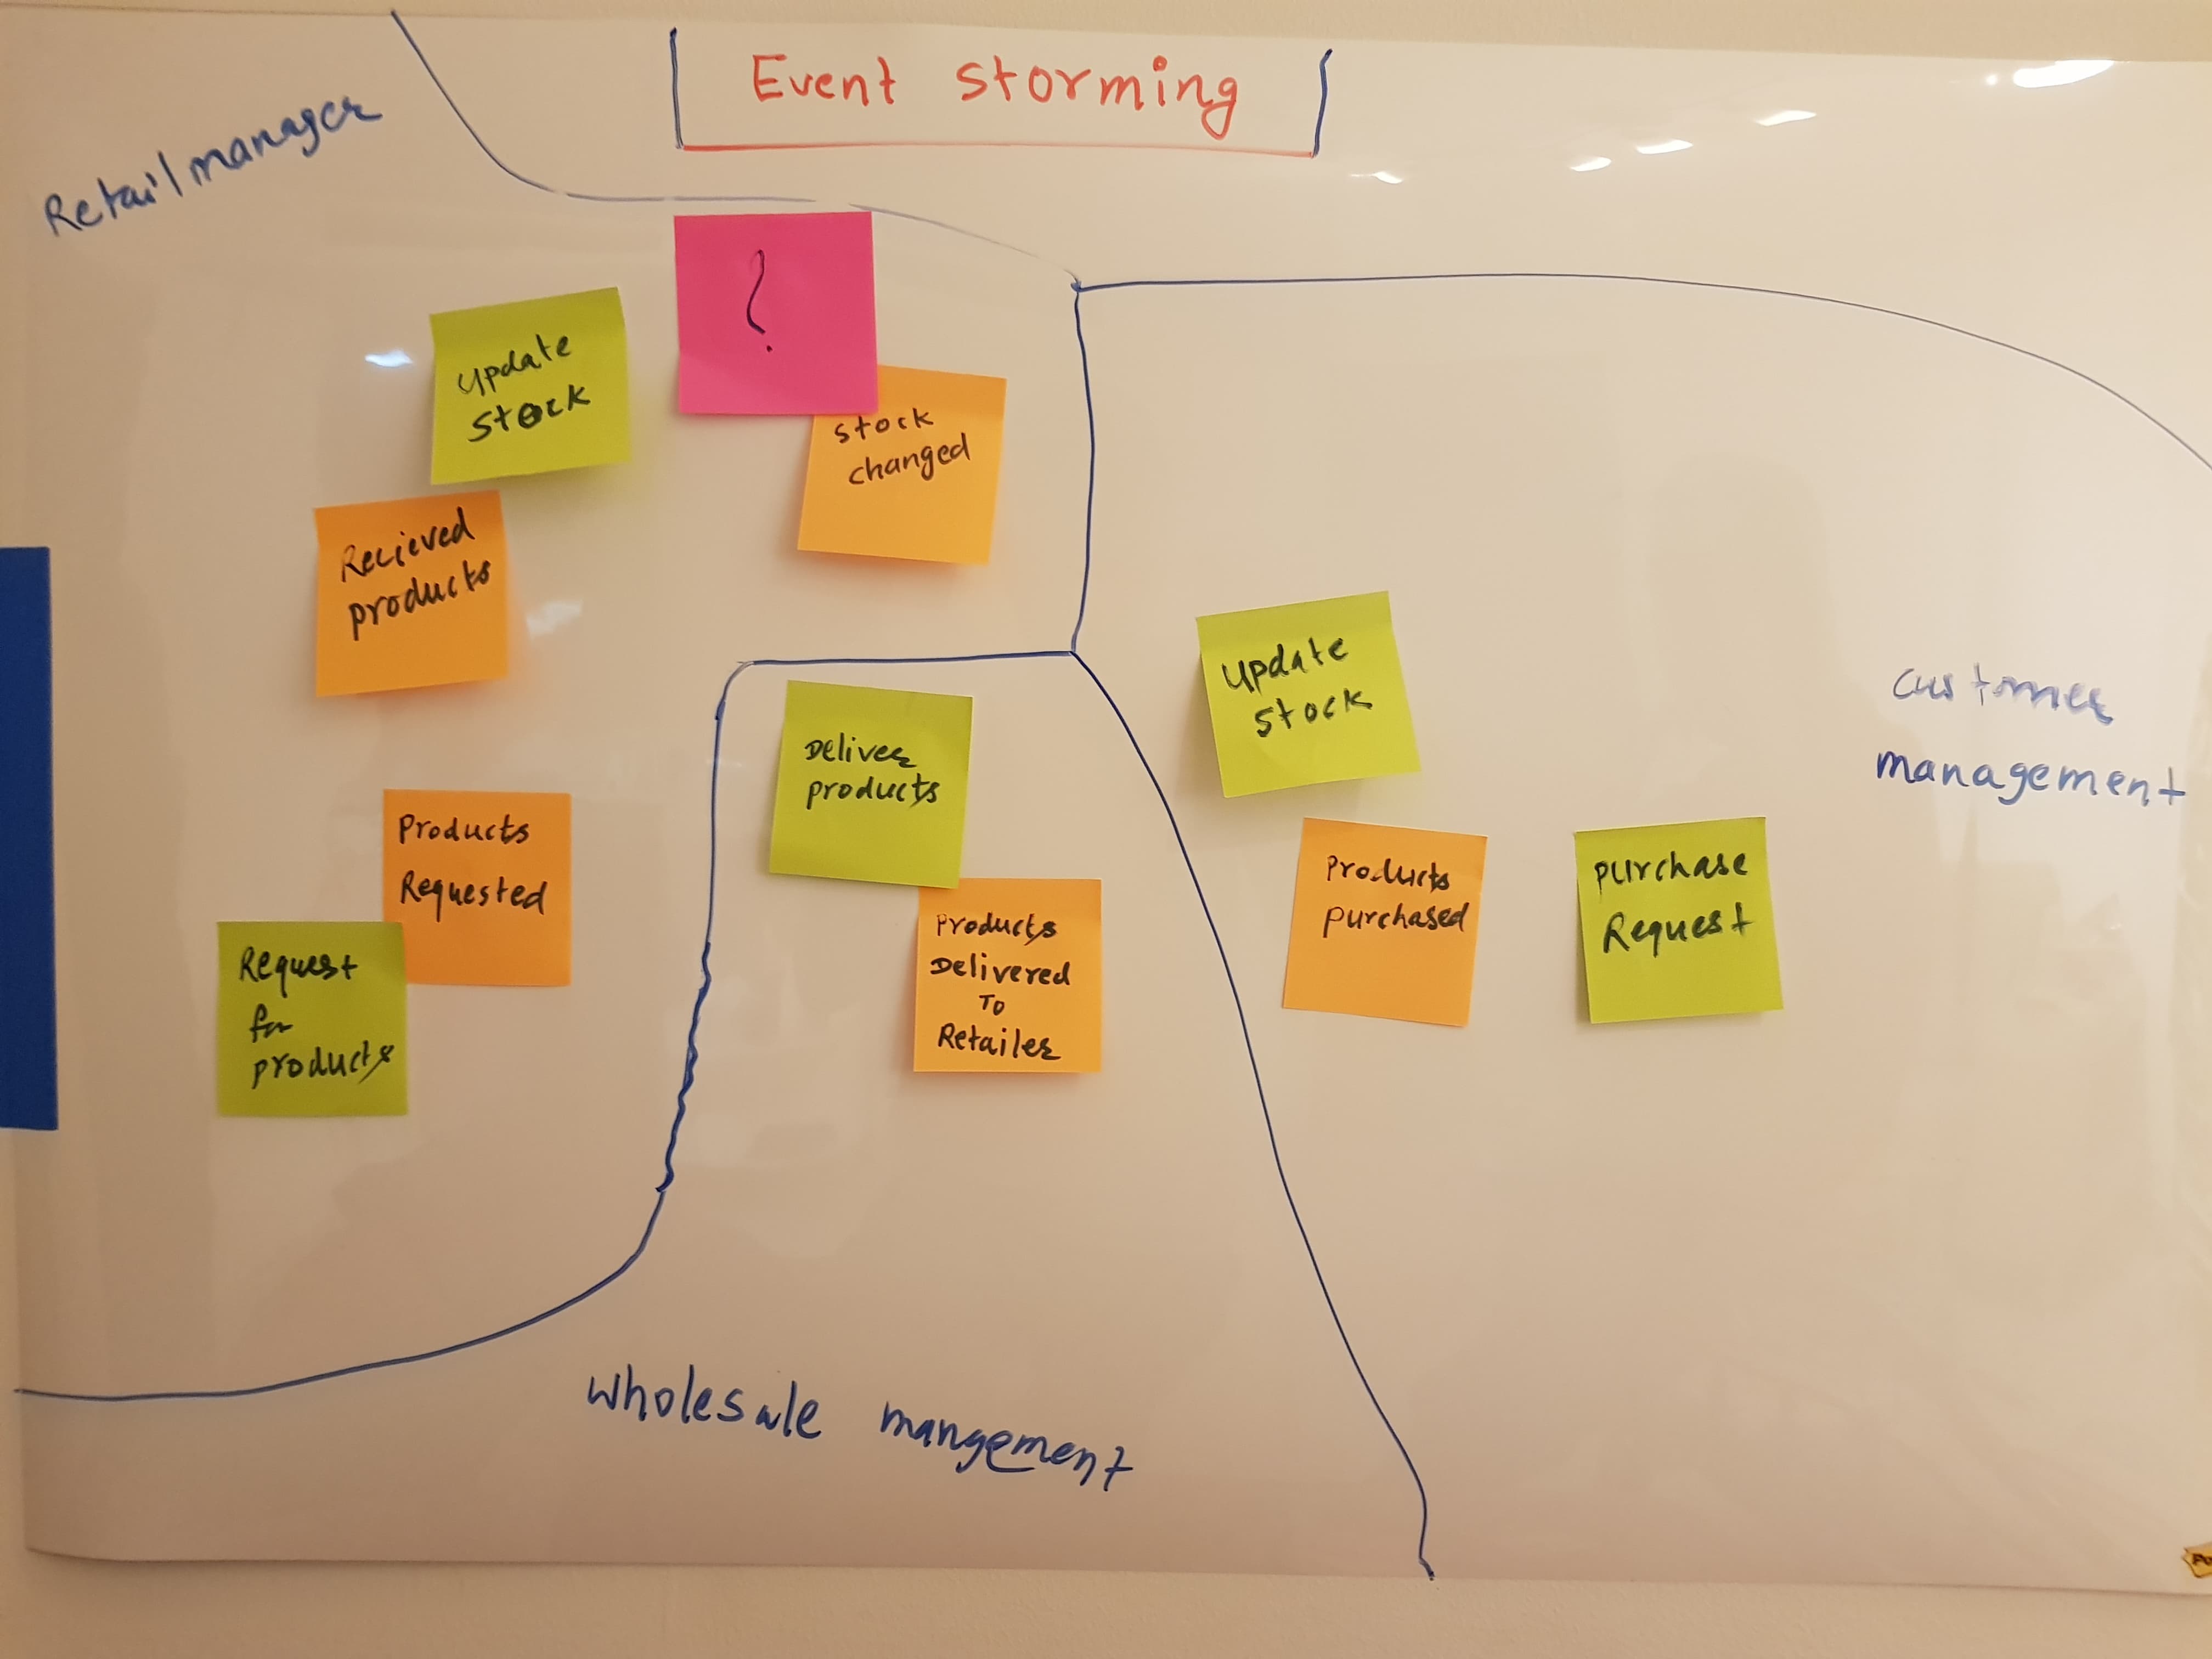 Event storming
Retail manager
?
Update
stock
stock
changed
Recieved
products
Products
Requested
Request
for
products
Deliver
products
Products
Delivered
To
Retailer
Update
stock
Products
purchased
purchase
Request
customer
management
wholesale mangement